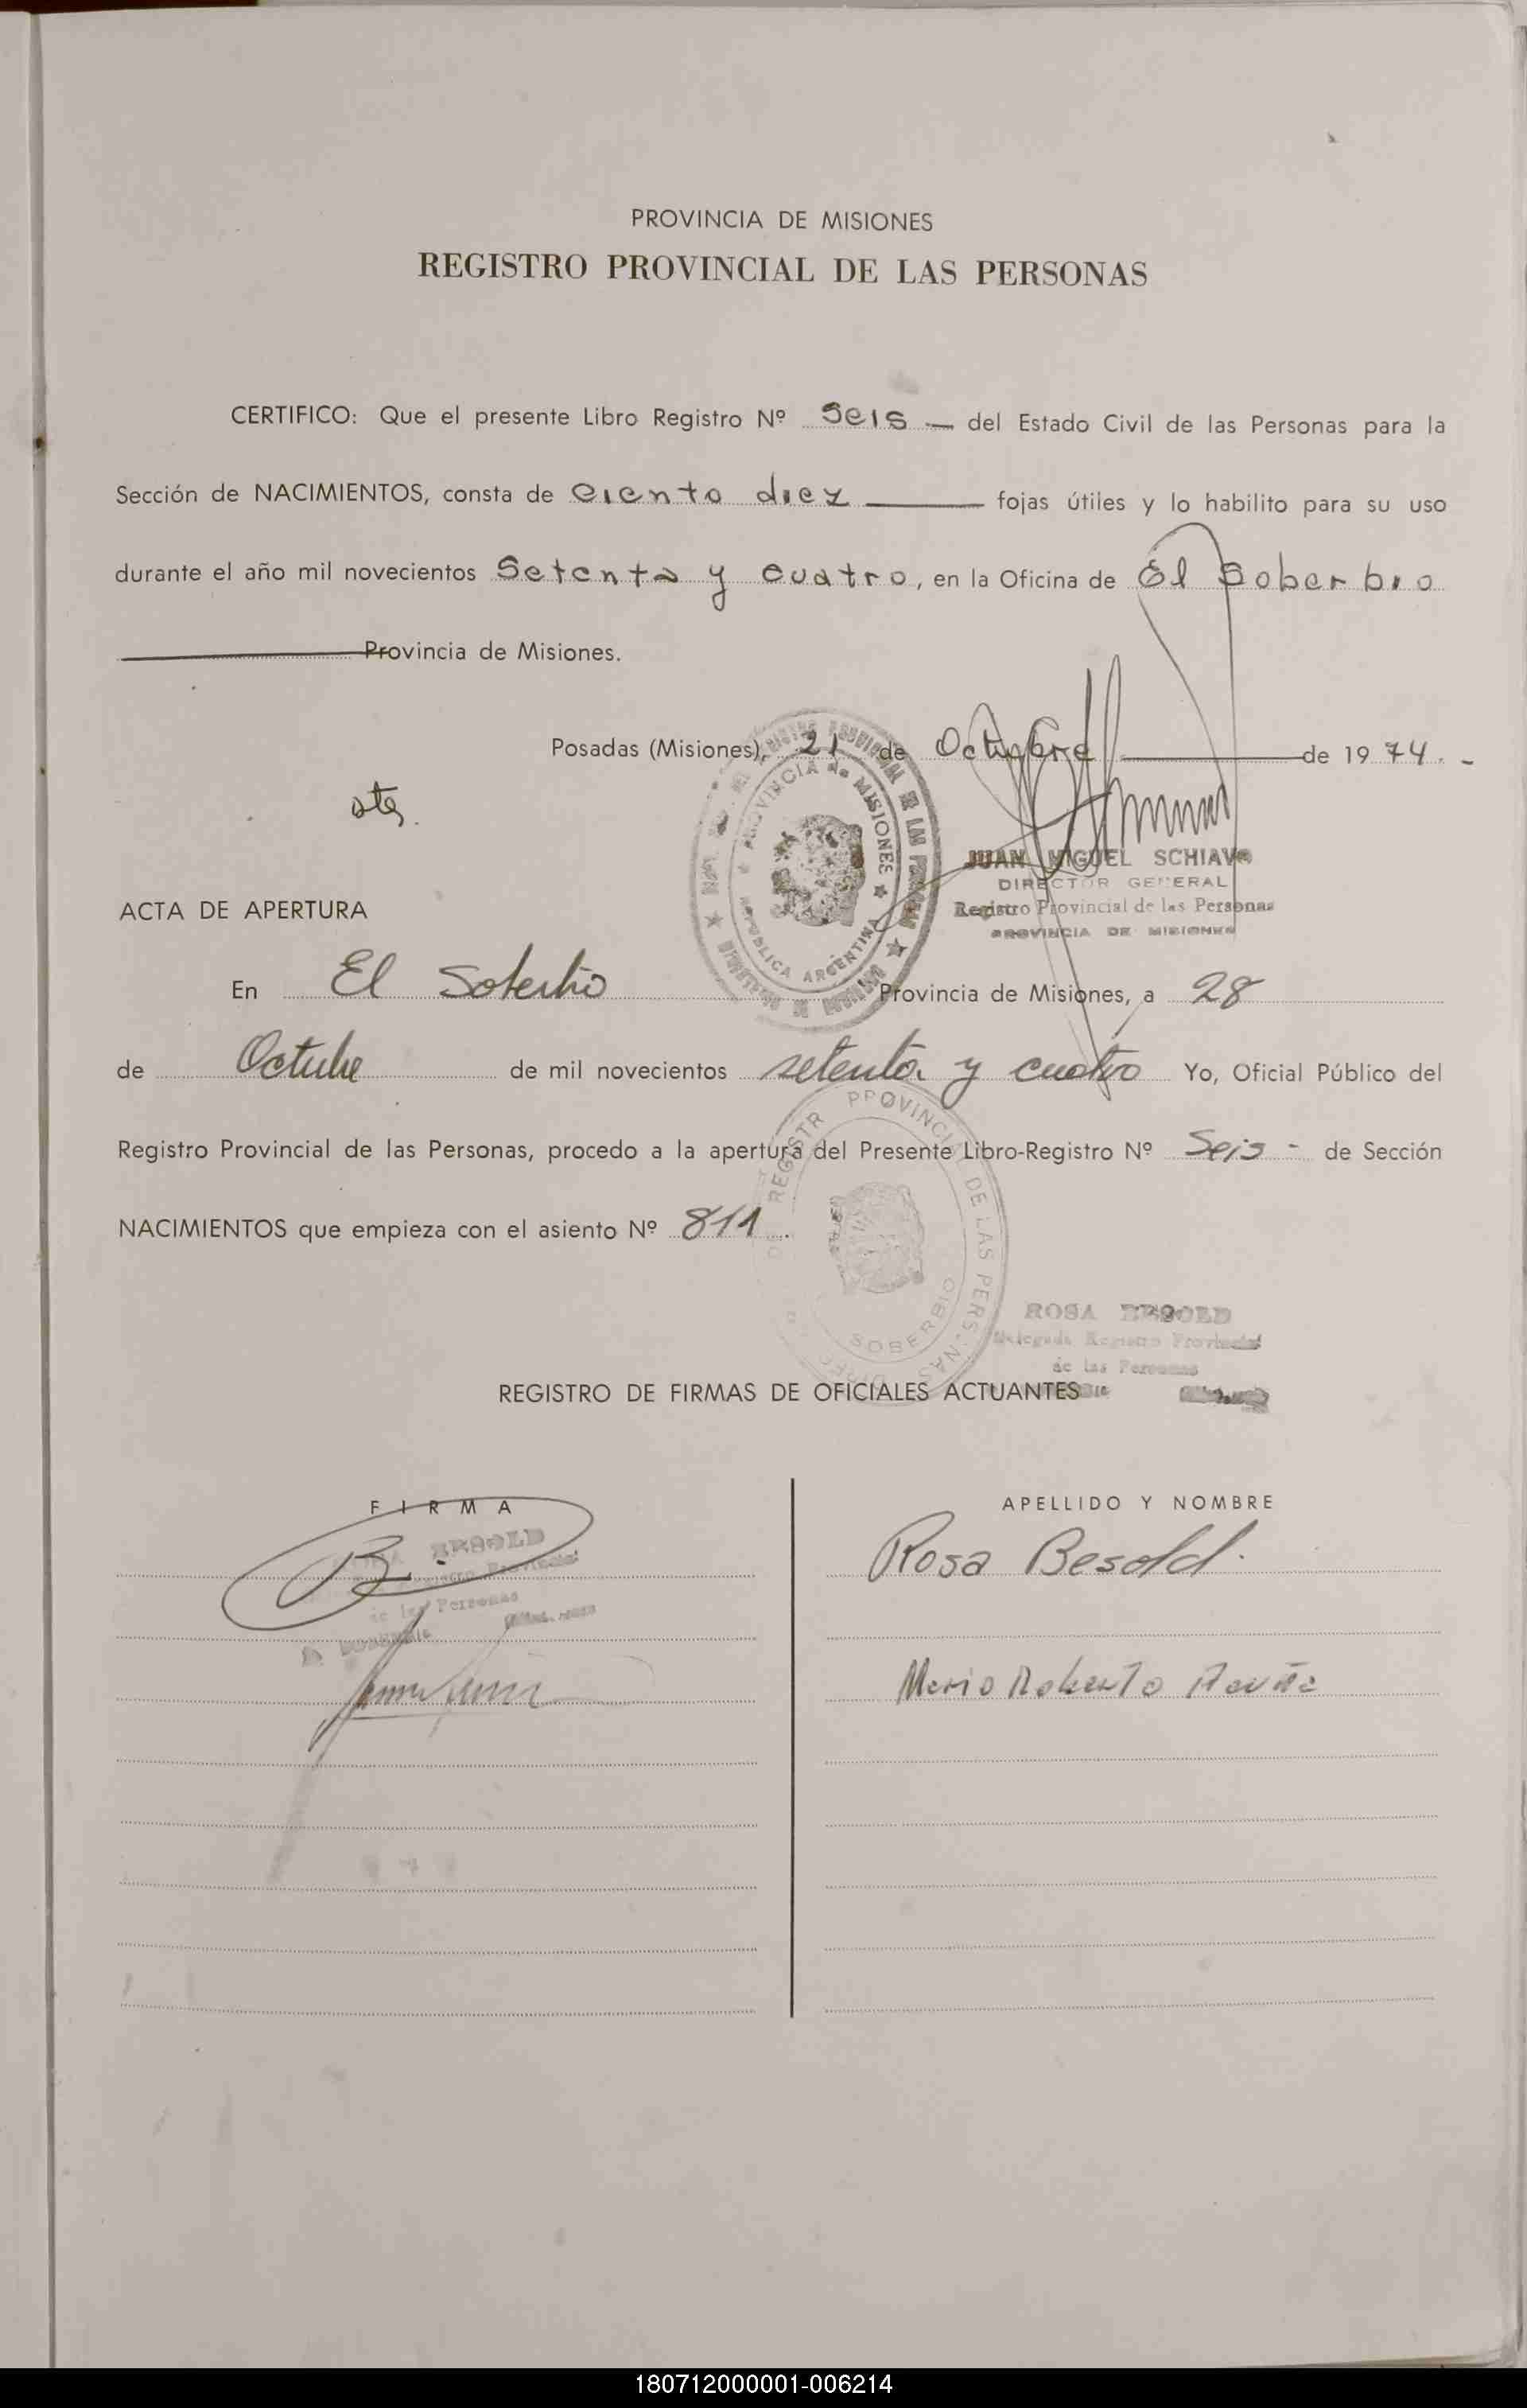 PROVINCIA DE MISIONES
REGISTRO PROVINCIAL DE LAS PERSONAS
CERTIFICO: Que el presente Libro Registro Nº Seis — del Estado Civil de las Personas para la
Sección de NACIMIENTOS, consta de ciento diez — fojas útiles y lo habilito para su uso
durante el año mil novecientos Setenta y cuatro, en la Oficina de El Soberbio
Provincia de Misiones.
Posadas (Misiones), 21 de Octubre — de 1974. -
JUAN MIGUEL SCHIAVO
DIRECTOR GENERAL
Registro Provincial de las Personas
PROVINCIA DE MISIONES
PROVINCIA de MISIONES
REPUBLICA ARGENTINA
ACTA DE APERTURA
En El Soberbio Provincia de Misiones, a 28
de Octubre de mil novecientos setenta y cuatro Yo, Oficial Público del
Registro Provincial de las Personas, procedo a la apertura del Presente Libro-Registro Nº Seis - de Sección
NACIMIENTOS que empieza con el asiento Nº 811
SOBERBIO
ROSA BESOLD
Delegada Registro Provincial
de las Personas
REGISTRO DE FIRMAS DE OFICIALES ACTUANTES
FIRMA
APELLIDO Y NOMBRE
Rosa Besold.
Mario Roberto
180712000001-006214